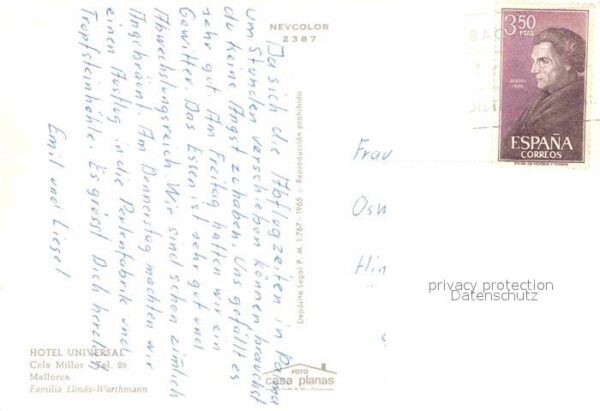 NEVCOLOR
2387
3,50
PTAS
ESPAÑA
CORREOS
Da sich die Abflugzeiten in Palma
um Stunden verschieben können brauchst
du keine Angst zu haben. Uns gefällt es
sehr gut. Am Freitag hatten wir ein
Gewitter. Das Essen ist sehr gut und
Abwechslungsreich Wir sind schon zimlich
Angebräunt. Am Donnerstag machten wir
einen Ausflug in die Perlenfabrik und
Tropfsteinhöhle. Es grüsst Dich herzlich
Emil und Liesel
Depósito Legal P. M. 1.767 - 1965 :: Reproducción prohibida
Frau
Osw
Hin
privacy protection
Datenschutz
HOTEL UNIVERSAL
Cala Millor - Tel. 26
Mallorca
Familia Llinás-Warthmann
FOTO
casa planas